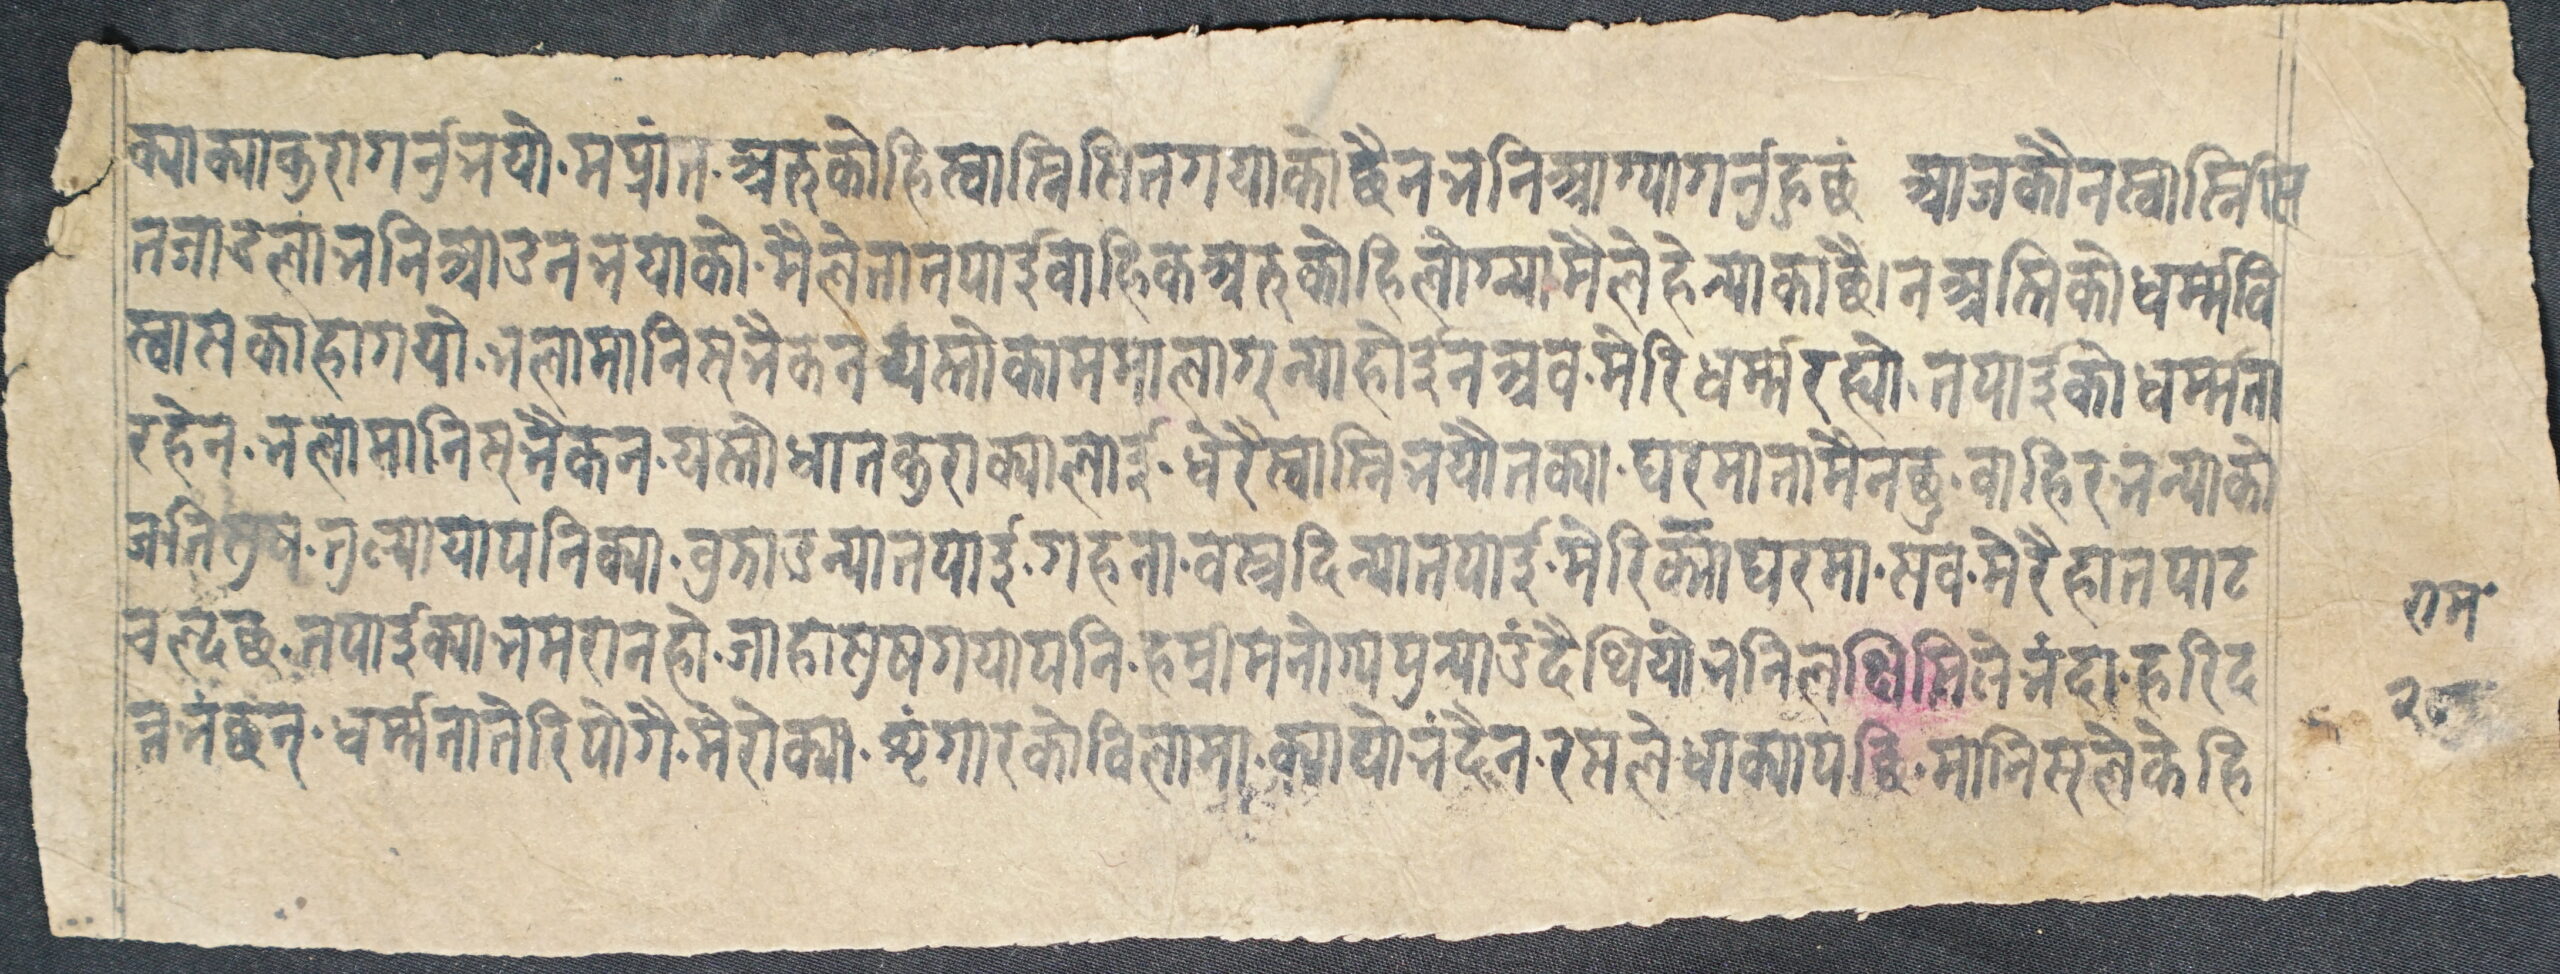 क्या क्या कुरा गर्नु भयो. म प्रांत. अरु कोहि स्वास्निसित गयाको छैन भनि आग्या गर्नु हुछं आज कौन स्वास्निसि
त जाउला भनि आउनु भयाको. मैले ता तपाई वाहिक अरु कोहि लोग्न्या मैले हेन्याका छै। न अस्तिको धर्म्म वि
स्वास काहा गयो. भला मानिस् भैकन यस्तो काममा लाग्न्या होईन अव. मेरि धर्म्म रह्यो. तपाईको धर्म्म ता
रहेन्. भला मानिस् भैकन. यस्तो धात कुरा क्या लाई. धेरै स्वास्नि भयो त क्या. घरमा ता मै न छु. वाहिर भन्याको
जति सुष. तुल्याया पनि क्या. वुझाउन्या तपाई. गहना. वस्त्र दिन्या तपाई. मेरि क्या घरमा. सव. मेरै हात पाट
चल्दछ. तपाई क्या भमरा न हो. जाहा सुष गया पनि. हम्रो मनोग्य पुन्याउंदै थियो भनि लछिमिले भंदा. हरिद
त्त भंछन्. धर्म्म ता तेरि पो गै. मेरो क्या. शृंगारको विलामा. क्या पो भंदैन. रसले धाक्या पछि. मानिस्ले केहि
राम
२